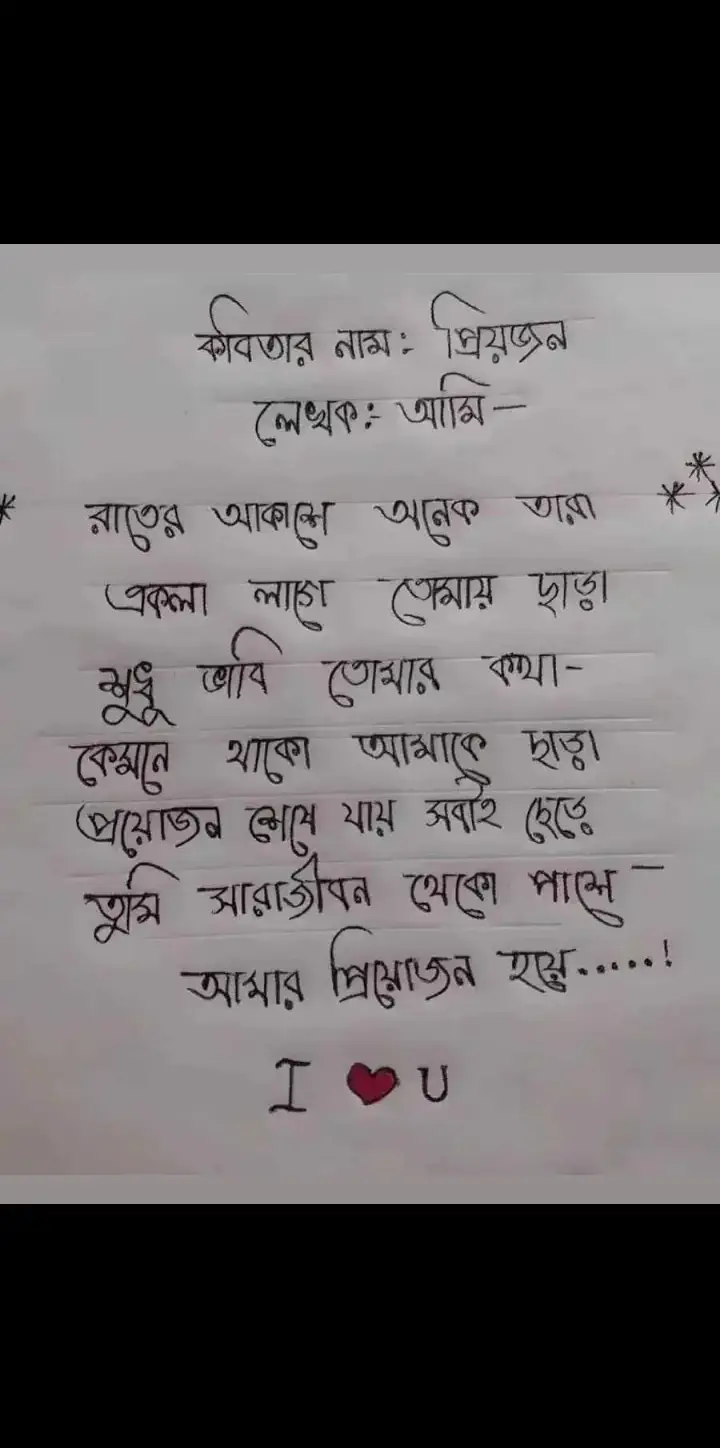 কবিতার নাম: প্রিয়জন
লেখক:- আমি -
রাতের আকাশে অনেক তারা
একলা লাগে তোমায় ছাড়া
শুধু ভাবি তোমার কথা-
কেমনে থাকো আমাকে ছাড়া
প্রয়োজন শেষে যায় সবাই ছেড়ে
তুমি সারাজীবন থেকো পাশে -
আমার প্রিয়োজন হয়ে.....!
I ❤ U